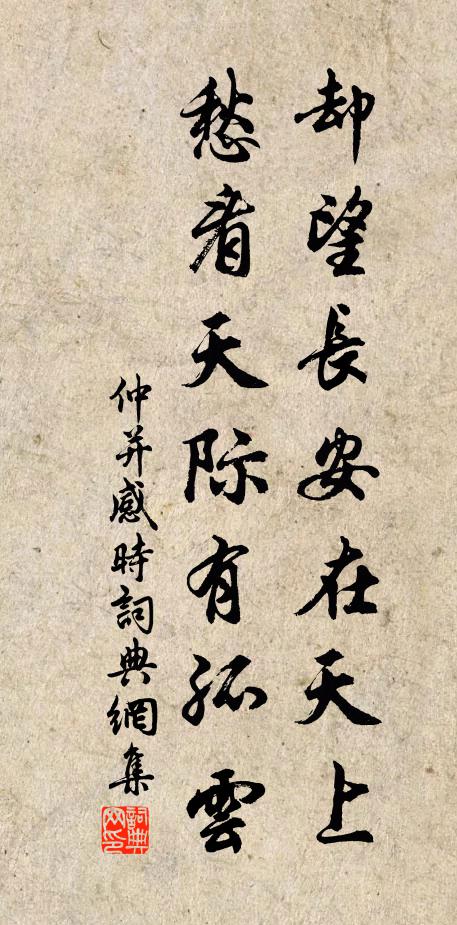 却望長安在天上
愁看天际有孤雲
仲并感時詞典網集
詞典网印